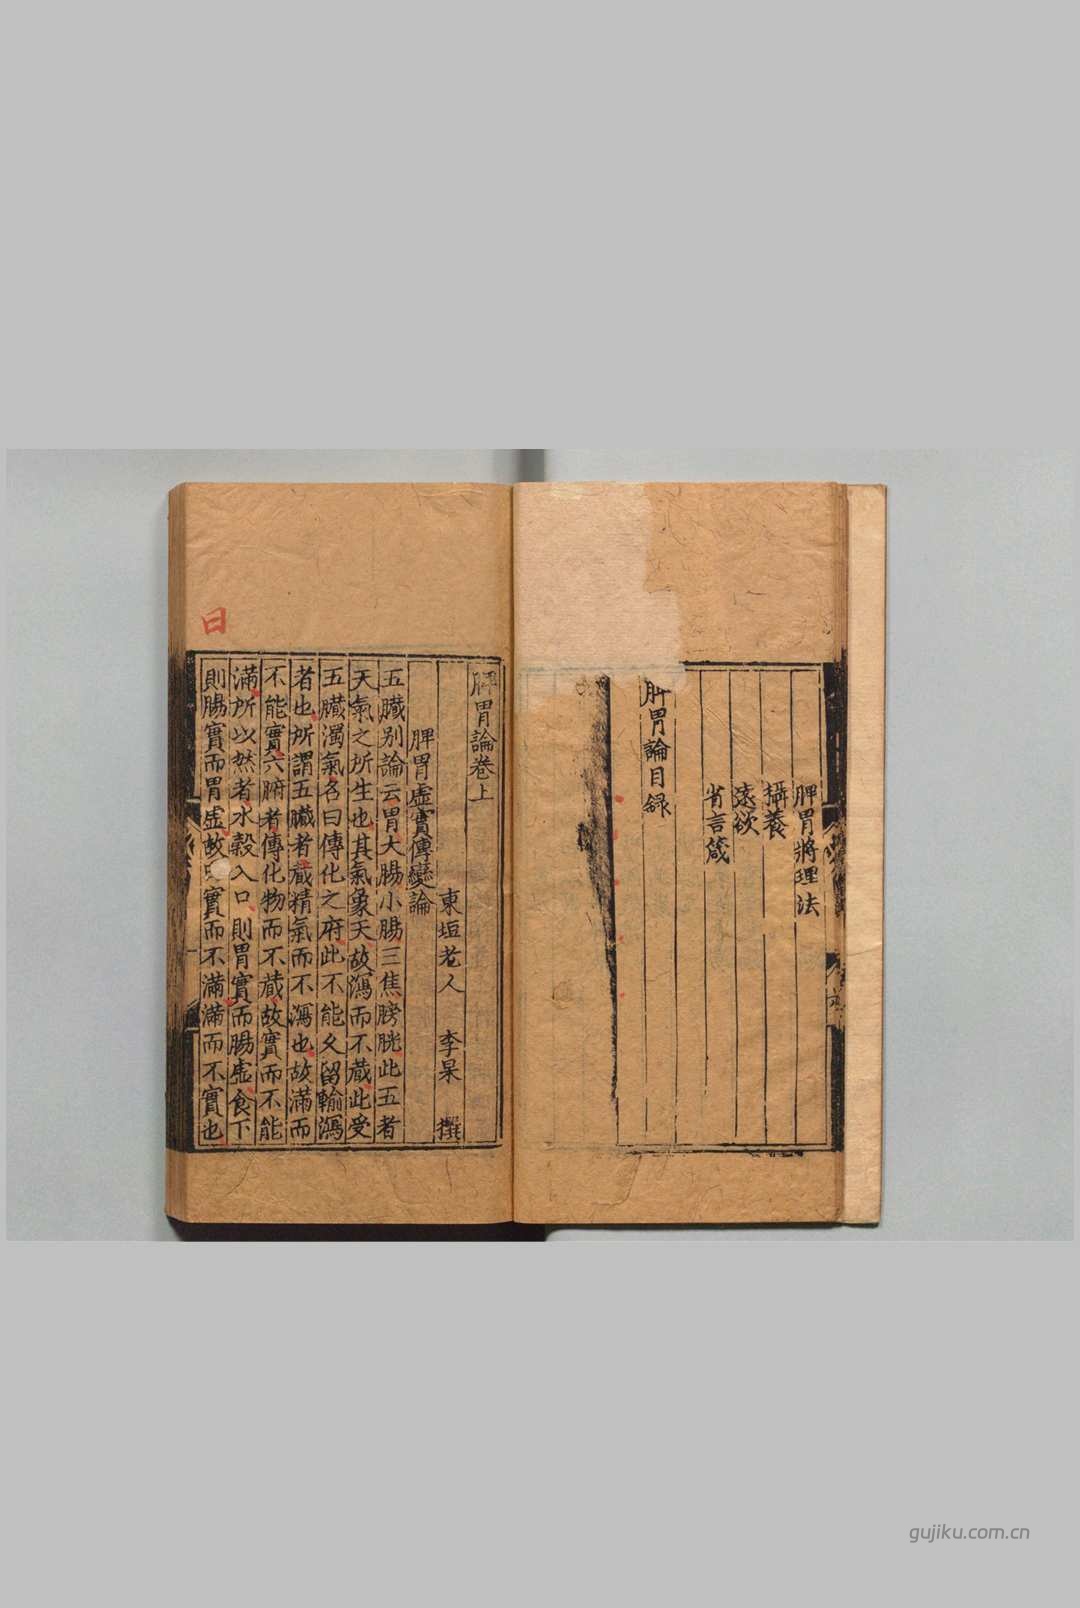 脾胃將理法
攝養
遠欲
省言箴
脾胃論目録
脾胃論卷上
東垣老人 李杲 撰
脾胃虛實傳變論
五臟别論云胃大腸小腸三焦膀胱此五者
天氣之所生也其氣象天故瀉而不藏此受
五臟濁氣名曰傳化之府此不能久留輸瀉
者也所謂五臟者藏精氣而不瀉也故滿而
不能實六腑者傳化物而不藏故實而不能
滿所以然者水穀入口則胃實而腸虛食下
則腸實而胃虛故曰實而不滿滿而不實也
曰
gujiku.com.cn